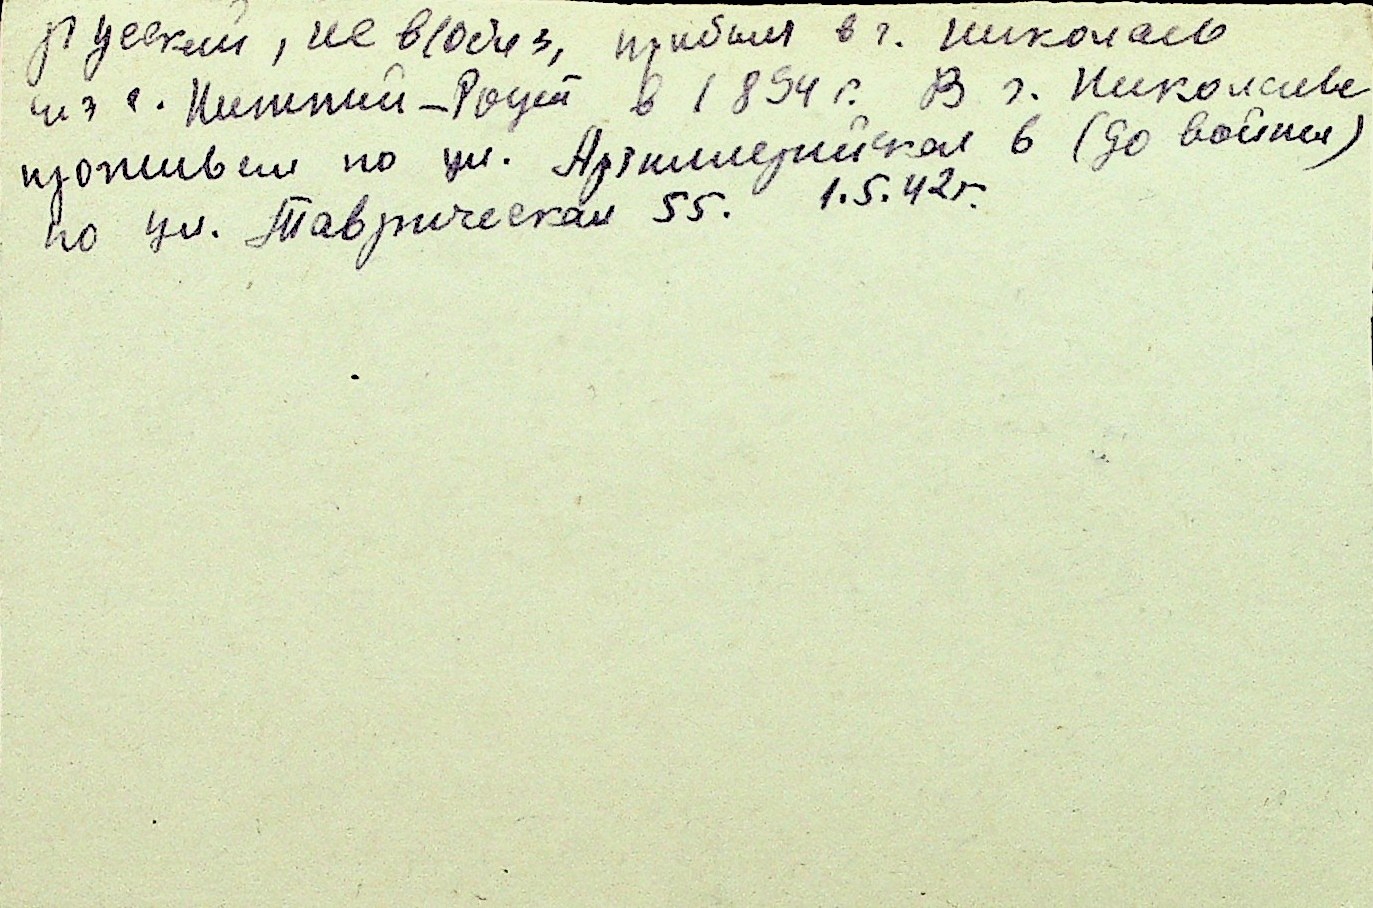 русский, не в/обяз, прибыл в г. Николаев
из с. Нижний-Рогач в 1894 г. В г. Николаеве
проживал по ул. Артиллерийская 6 (до войны)
по ул. Таврическая 55. 1.5.42г.